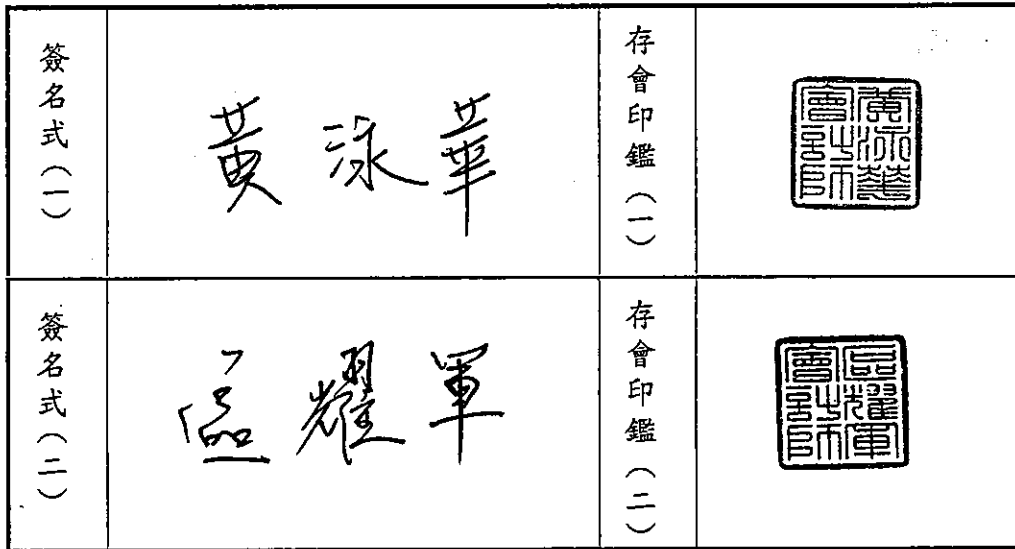 簽名式（一）
黃泳華
存會印鑑（一）
黃泳華會計師
簽名式（二）
區耀軍
存會印鑑（二）
區耀軍會計師